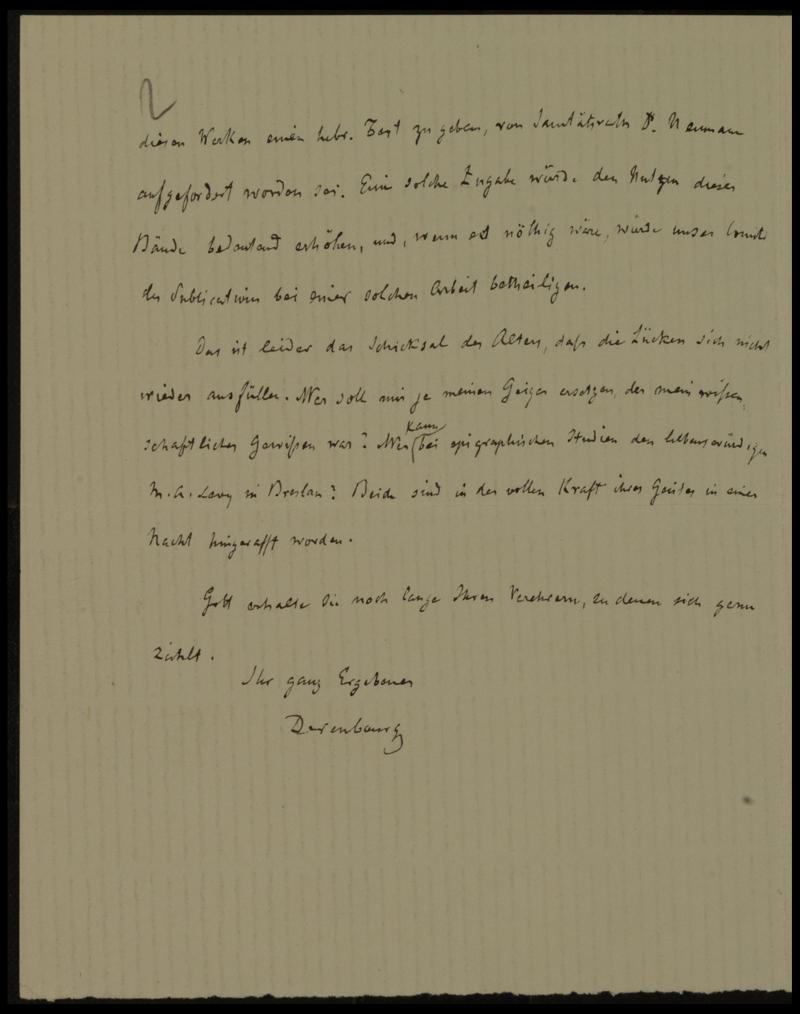 2
diesen Werken einen hebr. Text zu geben, von Sanitätsrath Dr. Neumann
aufgefordert worden sei. Eine solche Zugabe würde den Nutzen dieser
Bände bedeutend erhöhen, und, wenn es nöthig wäre, würde unser Comité
der Publication bei einer solchen Arbeit betheiligen.
Das ist leider das Schicksal des Alters, daß die Lücken sich nicht
wieder ausfüllen. Wer soll mir je meinen Geiger ersetzen, der mein wissen
schaftliches Gewißen war? Wer kann bei epigraphischen Studien den liebenswürdigen
M. A. Levy in Breslau? Beide sind in der vollen Kraft ihres Geistes in einer
Nacht hingerafft worden.
Gott erhalte Sie noch lange Ihren Verehrern, zu denen sich gern
zählt.
Ihr ganz Ergebener
Derenbourg